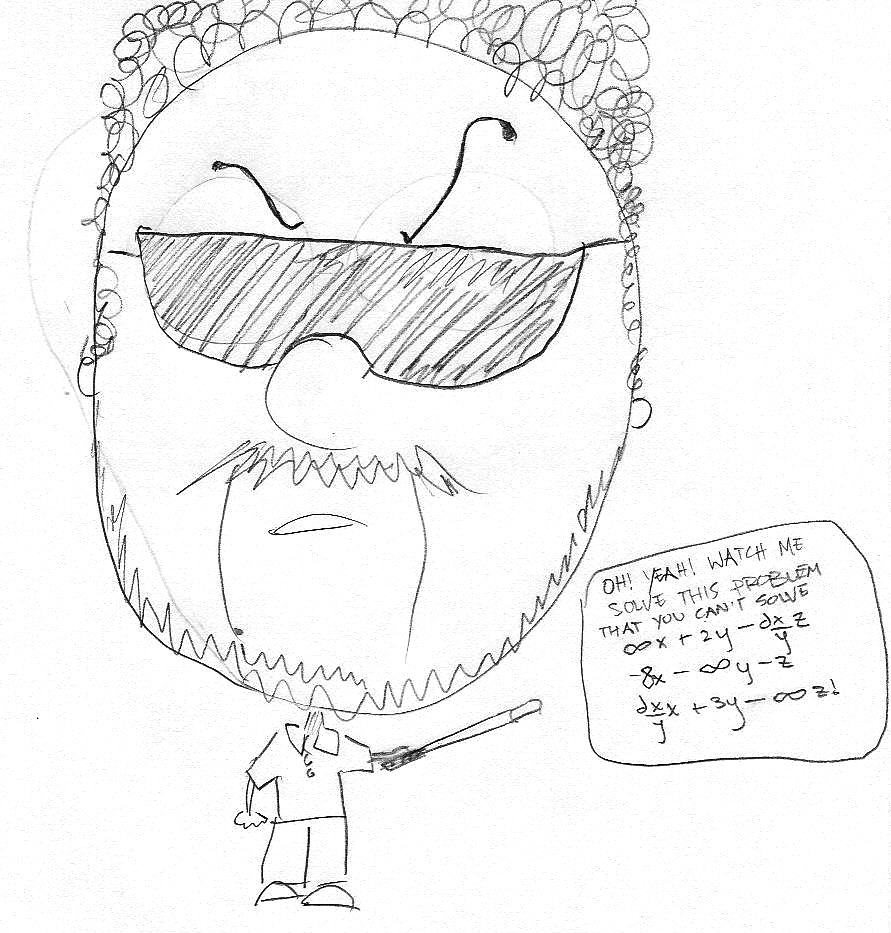 OH! YEAH! WATCH ME
SOLVE THIS PROBLEM
THAT YOU CAN'T SOLVE
∞x + 2y - dx/y z
-8x - ∞y - z
dx/y x + 3y - ∞z!